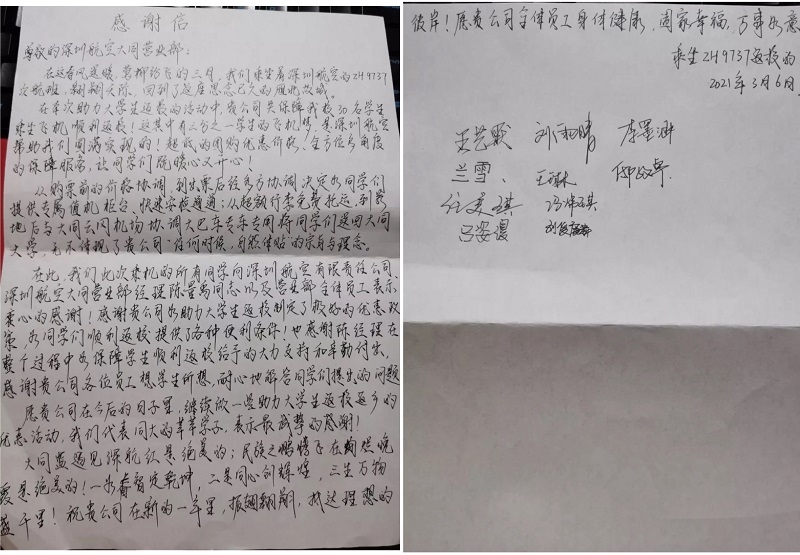 感谢信
尊敬的深圳航空大同营业部：
在这春风送暖、草柳的三月，我们乘坐着深圳航空的ZH9737
次航班，翱翔天际，回到了这座思念已久的雁北故城。
在本次助力大学生返校的活动中，贵公司共保障我校30名学生
乘坐飞机顺利返校！这其中有三分之一学生的飞机梦，是深圳航空
帮助我们圆满实现的！超低的团购优惠价格、全方位多角度
的保障服务，让同学们既暖心又开心！
从购票前的价格协调，到出票后经多方协调决定为同学们
提供专属值机柜台、快速安检通道；从超额行李免费托运，到
地后与大同云冈机场协调大巴车专车专用将同学们送回大同
大学，无不体现了贵公司“任何时候，自然体贴”的宗旨与理念。
在此，我们此次乘机的所有同学向深圳航空有限责任公司、
深圳航空大同营业部经理陈同志以及营业部全体员工表示
衷心的感谢！感谢贵公司为助力大学生返校制定了极好的优惠政
策，为同学们顺利返校提供了各种便利条件！也感谢陈经理在
整个过程中为保障学生顺利返校给予的大力支持和辛勤付出，
感谢贵公司各位员工想学生所想，耐心地解答同学们提出的问题
愿贵公司在今后的日子里，继续做一些助力大学生返校返乡的
优惠活动，我们代表同大的莘莘学子，表示最诚挚的感谢！
大同蓝遇见深航红是绝美的；民族之鹏腾飞在绚烂晚
霞是绝美的！一为睿智定乾坤，二是同心创辉煌，三生万物
盛千里！祝贵公司在新的一年里，振翅翱翔，抵达理想的
彼岸！愿贵公司全体员工身体健康，阖家幸福，万事如意
乘坐ZH9737返校的
2021年3月6日
兰雪、王琳